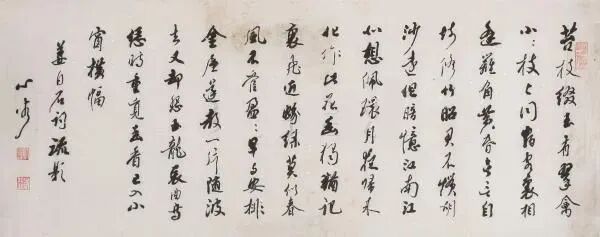 苔枝綴玉有翠禽
小〻枝上同宿客裏相
逢籬角黃昏無言自
倚脩竹昭君不慣胡
沙遠但暗憶江南江
北想佩環月夜歸來
化作此花幽獨猶記
裏飛近蛾綠莫似春
風不管盈〻早與安排
金屋還教一片隨波
去又却怨玉龍哀曲等
恁時重覓幽香已入小
窗橫幅
姜白石詞疏影
心畬